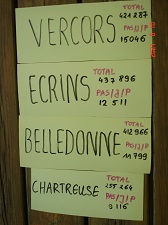 VERCORS
TOTAL
421 287
PAS/J/P
15046
ECRINS
TOTAL
437 896
PAS/J/P
12 511
BELLEDONNE
TOTAL
412 966
PAS/J/P
11 799
CHARTREUSE
TOTAL
255 264
PAS/J/P
9 116